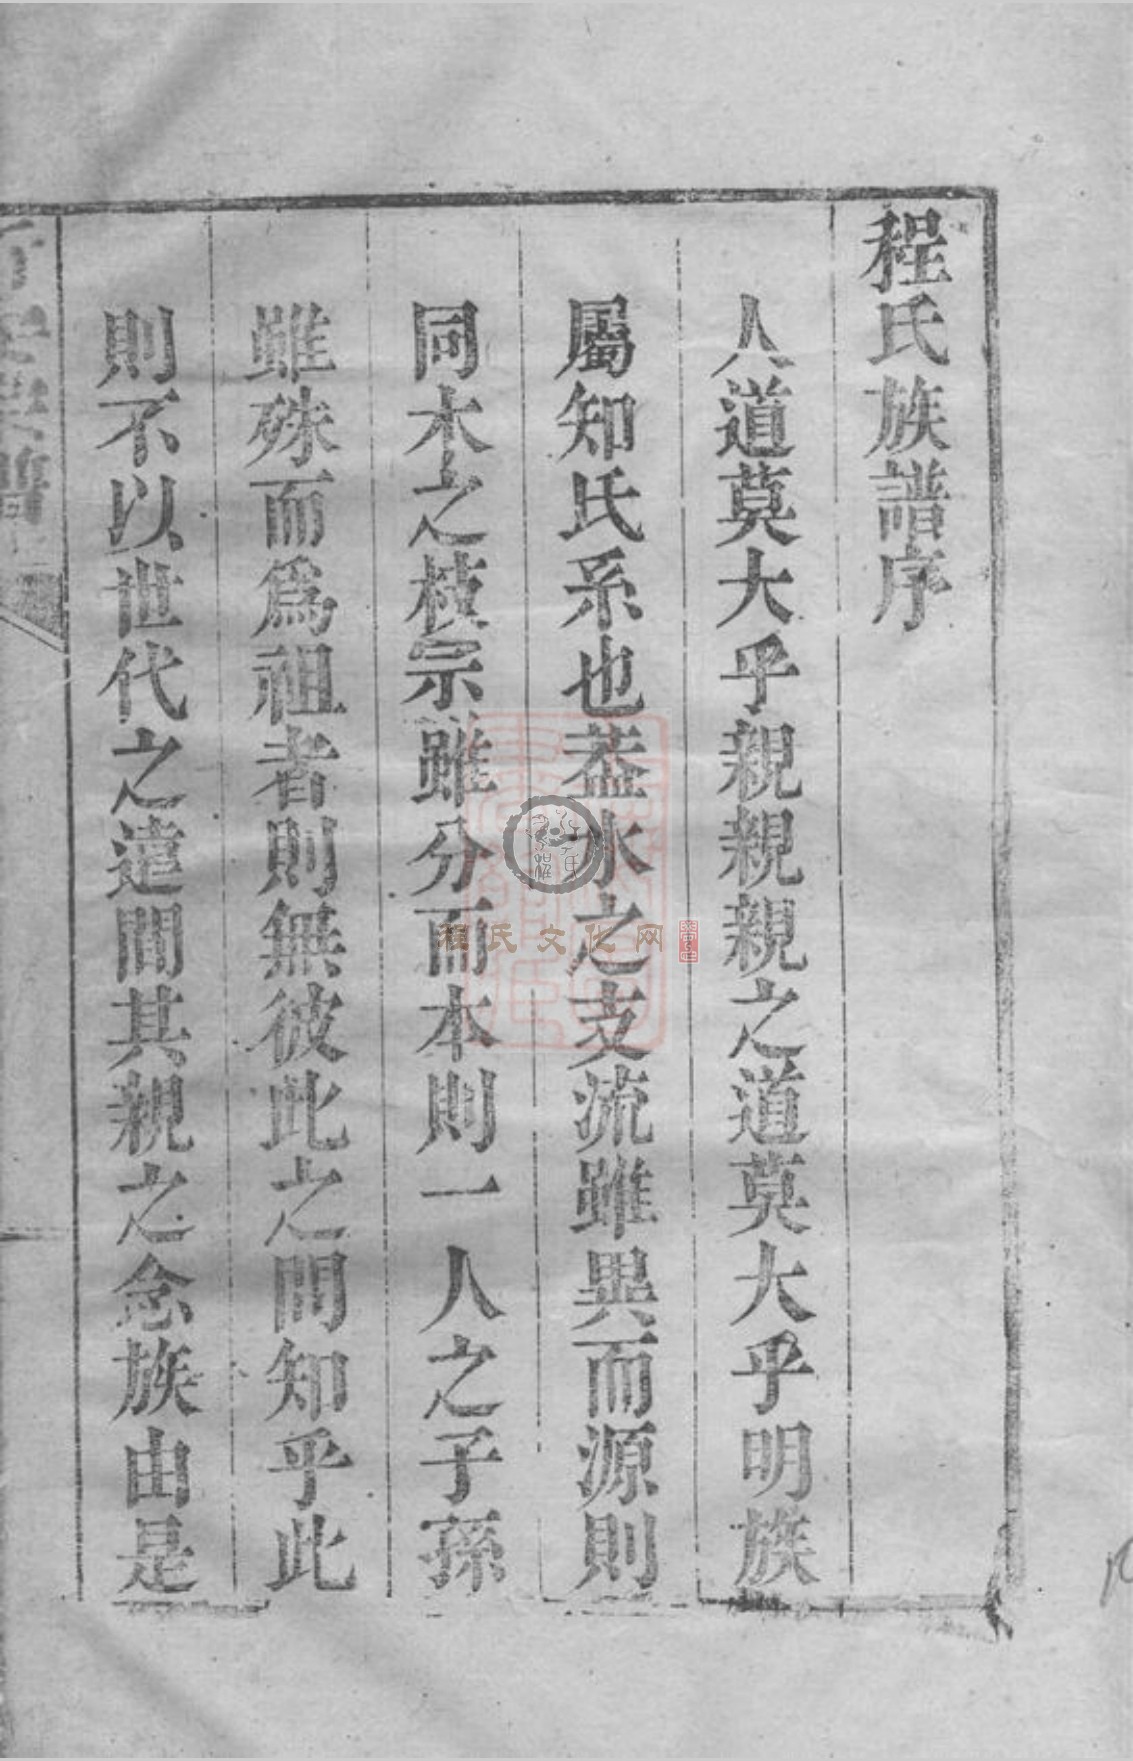 程氏族譜序
人道莫大乎親親親親之道莫大乎明族
屬知氏系也葢水之支流雖異而源則
同木之枝宗雖分而本則一人之子孫
雖殊而爲祖者則無彼此之間知乎此
則不以世代之遠間其親之念族由是
程氏文化网